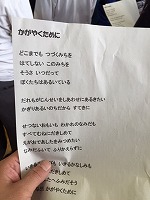 かがやくために
どこまでも つづくみちを
はてしない このみちを
そうさ いつだって
ぼくたちはあるいている
だれもがじんせいをしあわせにあるきたい
かぎりあるいのちだから すてきに
せつないおもいも わかれのなみだも
すべてむねにだきしめて
えがおであしたをみつめたい
なみだふいて ふりかえらずに
いきるかなしみも
かがやくために